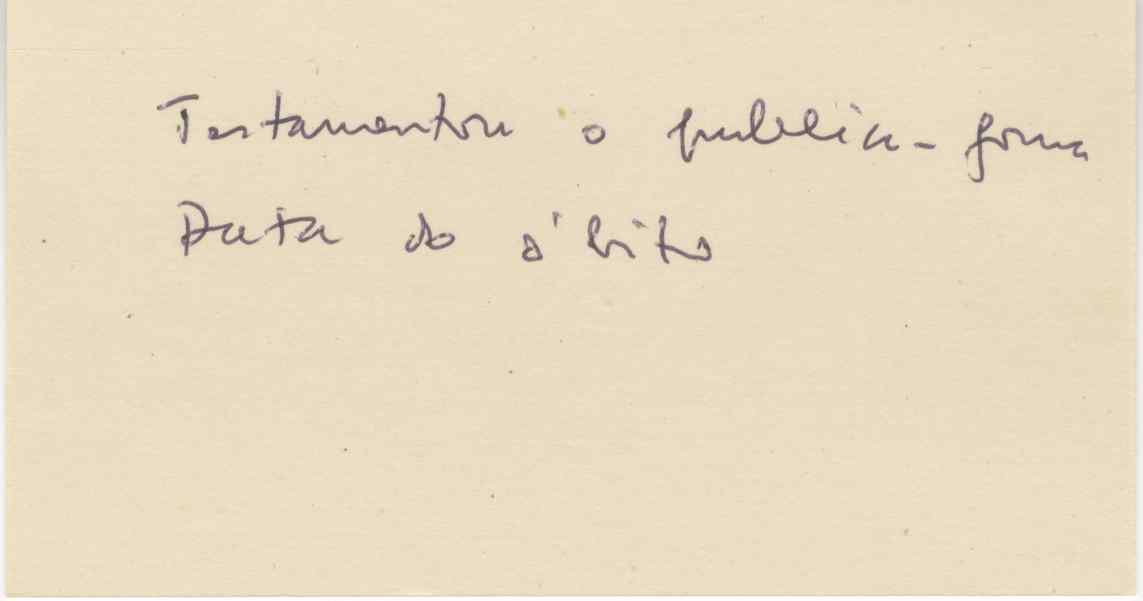 Testamento o publica-forma
Data do óbito